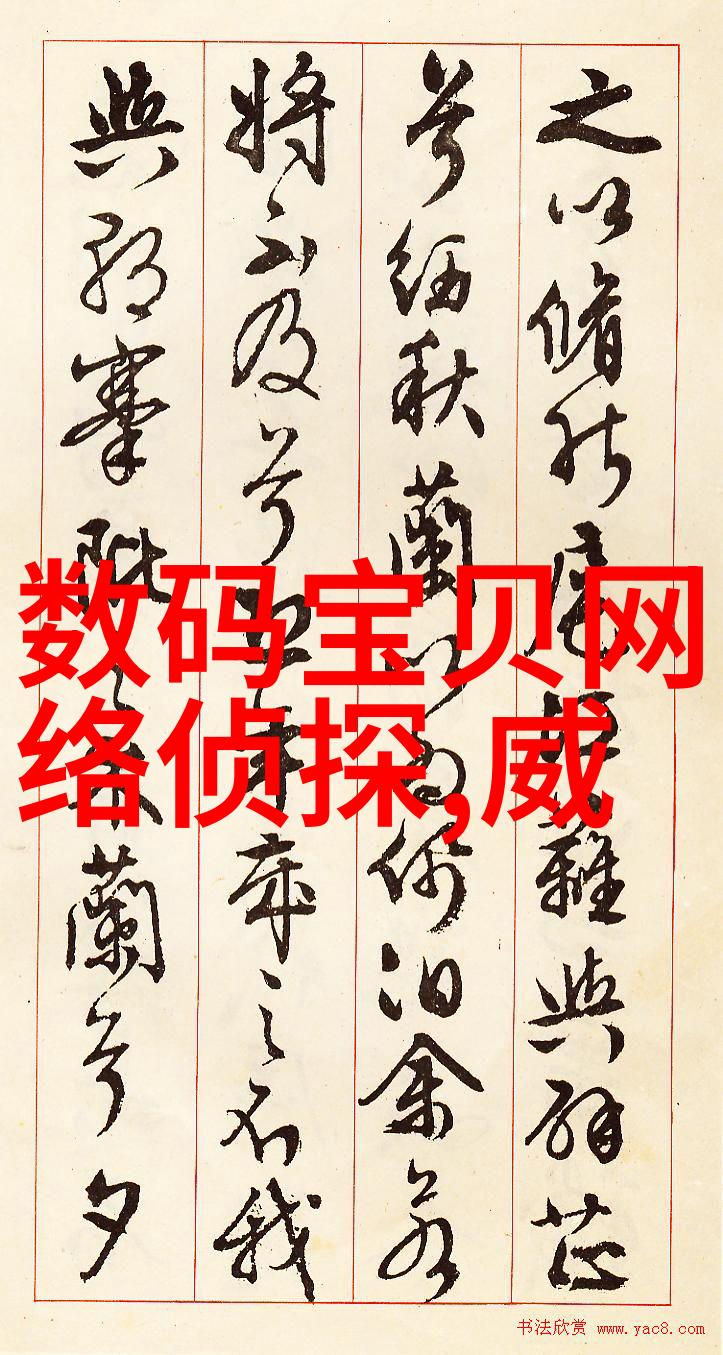 之以脩能扈江離與辟芷
兮紉秋蘭以為佩汩余若
將不及兮恐年歲之不我
與朝搴阰之木蘭兮夕
数码宝贝网
络侦探,威
书法欣赏 www.yac8.com